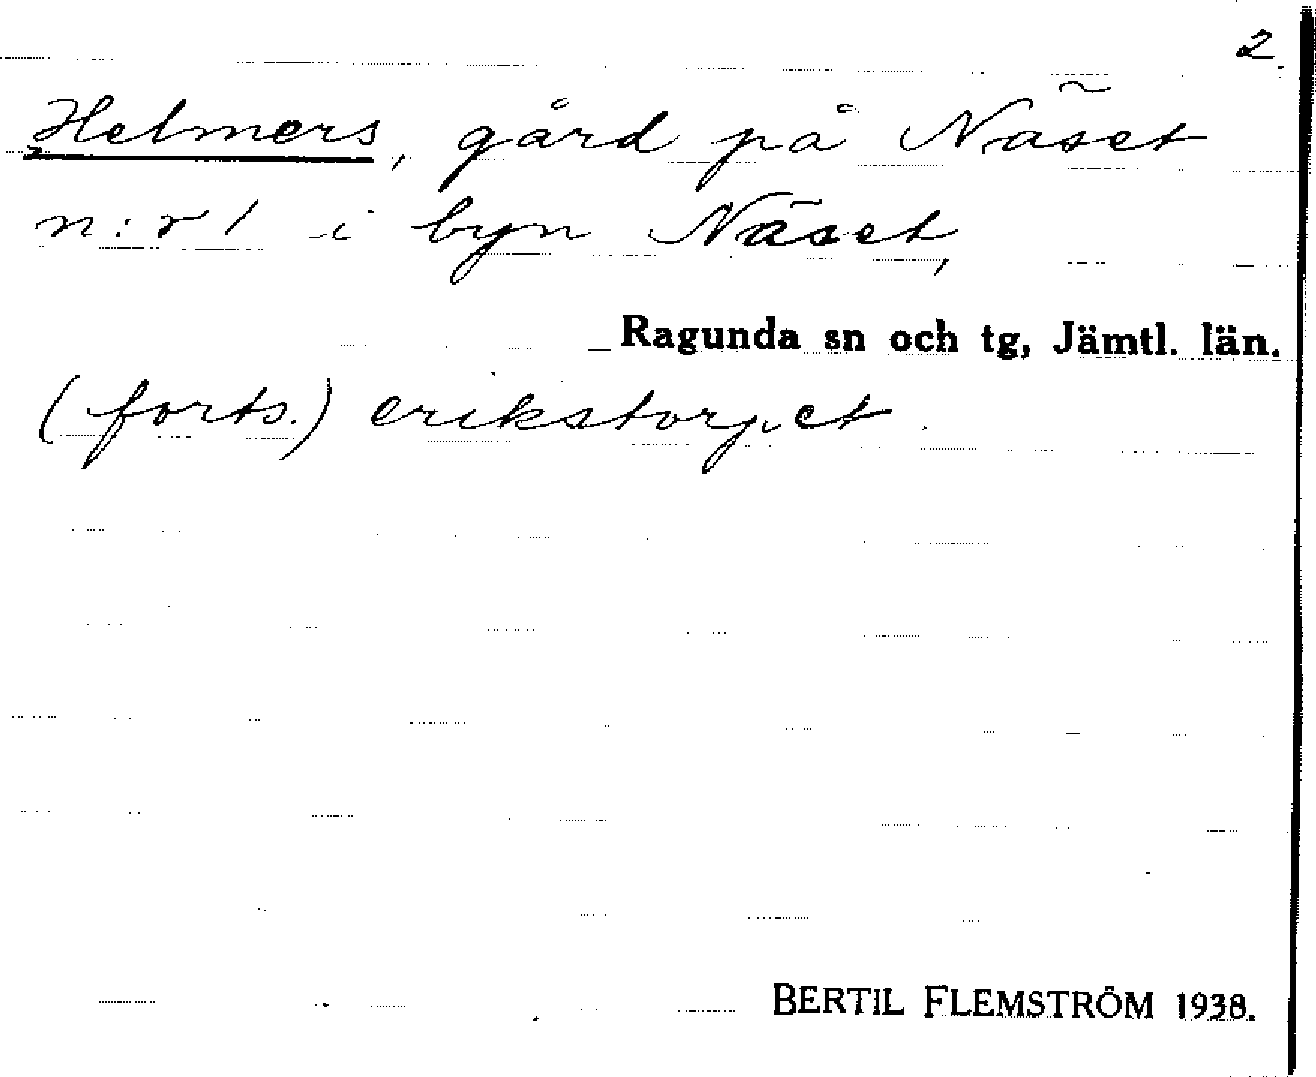 2.
Helmers, gård på Näset
n:r 1 i byn Näset,
Ragunda sn och tg, Jämtl. län.
(forts.) erikstorpet
BERTIL FLEMSTRÖM 1938.